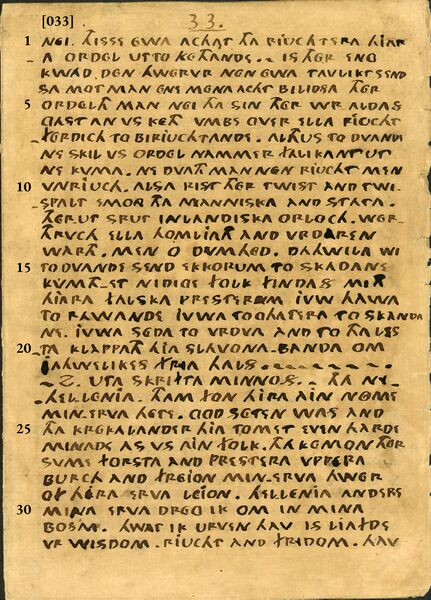 [033] 33.
1 NEI. THISSE EWA ACHAT THA RIUCHTERA HJAR
A ORDEL UTTO KETHANDE. . IS THER ENG
KWAD. DEN HWERVR NEN EWA TAVLIKT SEND
SA MOT MAN ENE MENA ACHT BILIDSA THER
5 ORDELTH MAN NEI THA SIN THER WR.ALDAS
GAST AN US KETH VMBE OVER ELLA RIUCHT
FERDICH TO BIRIUCHTANDE. ALTHUS TO DVANDE
NE SKIL VS ORDEL NAMMER FALIKANT UT
NE KVMA. NE DVATH MAN NEN RIUCHT MEN
10 VNRIUCH. ALSA RIST THER TWIST AND TWI-
SPALT EMONG THA MANNISKA AND STATA.
THERUT SPRUT INLANDISKA ORLOCH. WER-
THRVCH ELLA HOMLJATH AND VRDAREN
WARTH. MEN O DVMHED. DAHWILA WI
15 TO DVANDE SEND EKKORUM TO SKADANE
KVMTH-ET NIDIGE FOLK FINDAS MITH
HJARA FALSKA PRESTERUM JVW HAWA
TO RAWANDE JVWA TOGHATERA TO SKANDA
NE. JVWA SEDA TO VRDVA AND TO THA LES
20 TA KLAPPATH HJA SLAVONA-BANDA OM
JAHWELIKES FRJA HALS.
2. UTA SKRIFTA MINNOS. THA NY-
HELLENIA. THAM FON HIRA AIN NOME
MIN-ERVA HETE. GOD SETEN WAS AND
25 THA KREKALANDER HJA TOMET EVEN HARDE
MINADE AS US AIN FOLK. THA KEMON THER
SVME FORSTA AND PRESTERA VPPERA
BURCH AND FREGON MIN-ERVA HWER
OF HJRA ERVA LEJON. HELLENIA ANDERE
30 MINA ERVA DREG IK OM IN MINA
BOSM. HWAT IK URVEN HAV IS LJAFDE
VR WISDOM. RIUCHT AND FRIDOM. HAV